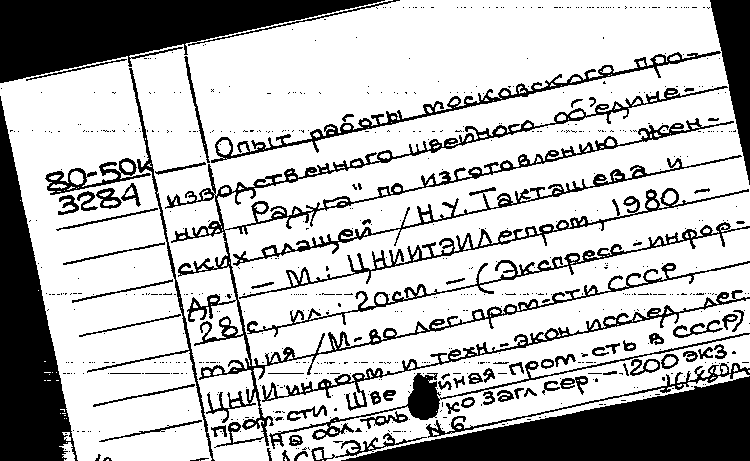 80-50к
3284
Опыт работы московского про-
изводственного швейного об'едине-
ния "Радуга" по изготовлению жен-
ских плащей / Н.У. Такташева и
др. — М.: ЦНИИТЭИЛегпром, 1980. —
28 с., ил.; 20см. — (Экспресс-инфор-
мация / М-во лег. пром-сти СССР,
ЦНИИ информ. и техн.-экон. исслед. лег.
пром-сти. Шве йная пром-сть в СССР)
На обл. толь ко загл. сер. — 1200 экз.
АСП. ЭКЗ. N 6